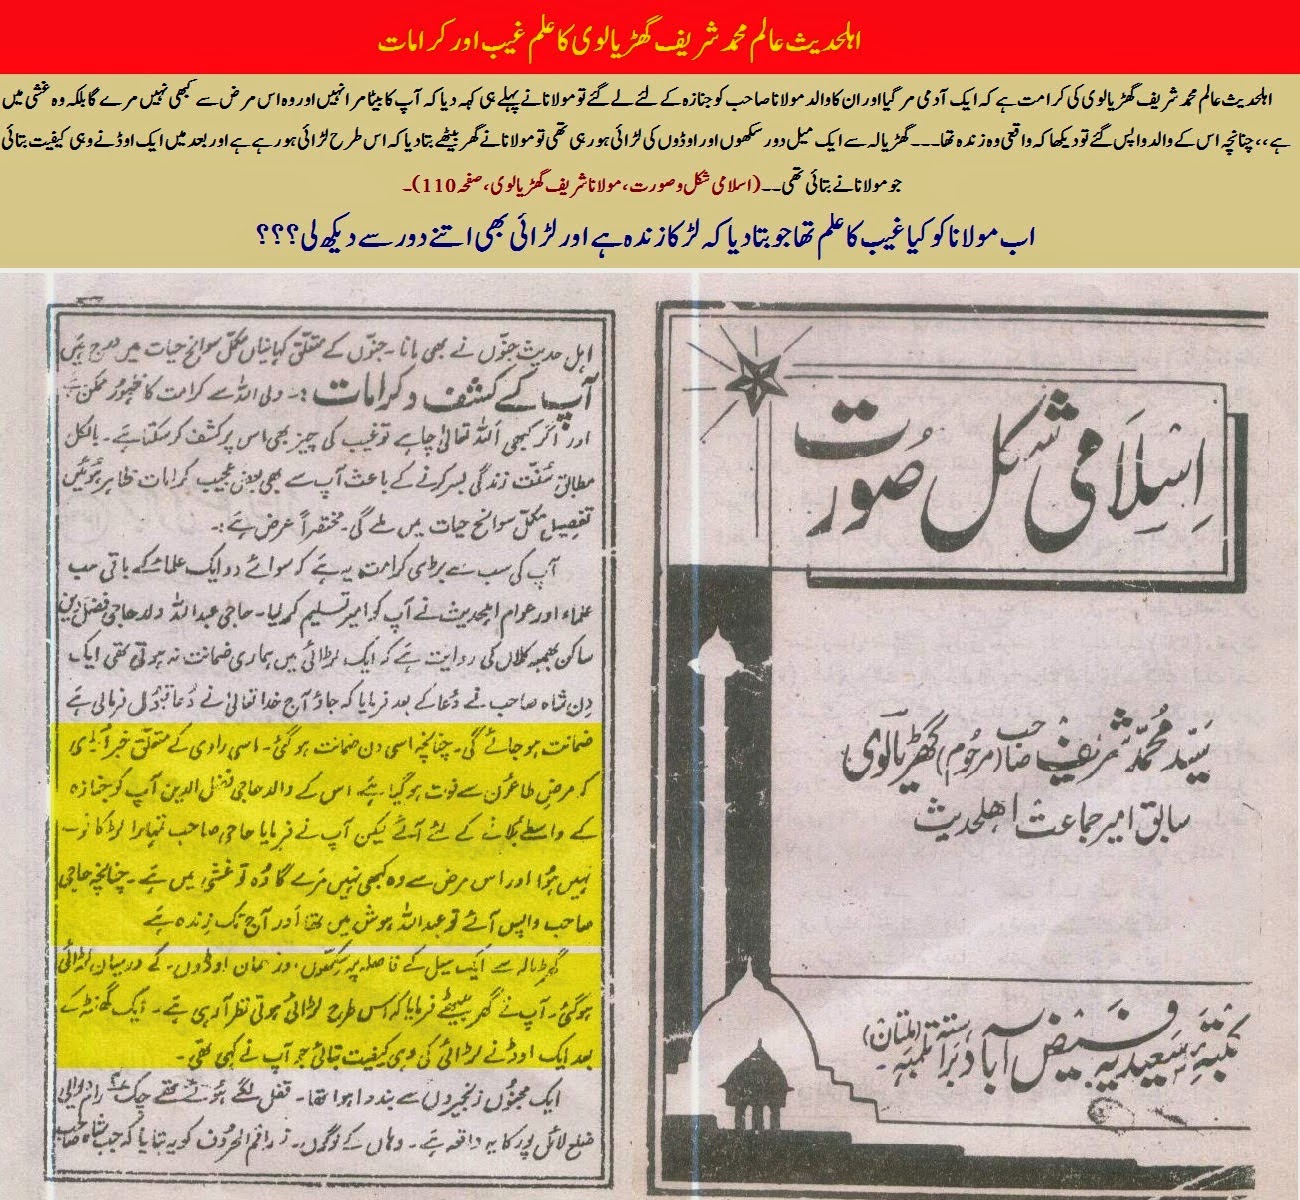 اہلحدیث عالم محمد شریف گھڑیالوی کا علم غیب اور کرامات
اہلحدیث عالم محمد شریف گھڑیالوی کی کرامت ہے کہ ایک آدمی مر گیا اور ان کا والد مولانا صاحب کو جنازہ کے لئے لے گئے تو مولانا نے پہلے ہی کہہ دیا کہ آپ کا بیٹا مرا نہیں اور وہ اس مرض سے کبھی نہیں مرے گا بلکہ وہ غشی میں
ہے،، چنانچہ اس کے والد واپس گئے تو دیکھا کہ واقعی وہ زندہ تھا۔۔۔ گھڑیالہ سے ایک میل دور سکھوں اور اوڈوں کی لڑائی ہو رہی تھی تو مولانا نے گھر بیٹھے بتا دیا کہ اس طرح لڑائی ہو رہے ہے اور بعد میں ایک اوڈ نے وہی کیفیت بتائی
جو مولانا نے بتائی تھی۔۔ (اسلامی شکل و صورت، مولانا شریف گھڑیالوی، صفحہ 110)۔
اب مولانا کو کیا غیب کا علم تھا جو بتا دیا کہ لڑکا زندہ ہے اور لڑائی بھی اتنے دور سے دیکھ لی؟؟؟
اِسْلَامی شکل صُورت
سیّد محمّد شریف صاحب (مرحوم) گھڑیالوی
سابق امیر جماعت اھلحدیث
مکتبہ سعیدیہ فیض آباد براستہ تلمبہ (ملتان)
اہل حدیث جنّوں نے بھی مانا۔ جنّوں کے متعلق کہانیاں مکمّل سوانح حیات میں درج ہیں
آپ کے کشف و کرامات :۔ ولی اللہ سے کرامت کا ظہور ممکن ہے
اور اگر کبھی اللہ تعالیٰ چاہے تو غیب کی چیز بھی اس پر کشف کر سکتا ہے۔ بالکل
مطابق سُنّت زندگی بسر کرنے کے باعث آپ سے بھی بعض عجیب کرامات ظاہر ہوئیں
تفصیل مکمّل سوانح حیات میں ملے گی۔ مختصراً عرض ہے :۔
آپ کی سب سے بڑی کرامت یہ ہے کہ سوائے دو ایک علماء کے باقی سب
علماء اور عوام اہلحدیث نے آپ کو امیر تسلیم کر لیا۔ حاجی عبداللہ ولد حاجی فضل دین
ساکن بھمبہ کلاں کی روایت ہے کہ ایک لڑائی میں ہماری ضمانت نہ ہوتی تھی ایک
دن شاہ صاحب نے دُعا کے بعد فرمایا کہ جاؤ آج خدا تعالیٰ نے دُعا قبول فرمالی ہے
ضمانت ہو جائے گی۔ چنانچہ اسی دن ضمانت ہو گئی۔ اسی راوی کے متعلق خبر آئی
کہ مرض طاعون سے فوت ہو گیا ہے، اس کے والد حاجی فضل الدین آپ کو جنازہ
کے واسطے بلانے کے لئے آئے لیکن آپ نے فرمایا حاجی صاحب تمہارا لڑکا فوت
نہیں ہوا اور اس مرض سے وہ کبھی نہیں مرے گا وُہ تو غشی میں ہے۔ چنانچہ حاجی
صاحب واپس آئے تو عبداللہ ہوش میں تھا اور آج تک زندہ ہے
گھڑیالہ سے ایک میل کے فاصلہ پر سکھّوں، اوڈوں۔ کے درمیان لڑائی
ہو گئی۔ آپ نے گھر بیٹھے فرمایا کہ اس طرح لڑائی ہوتی نظر آ رہی ہے۔ ایک گھنٹہ کے
بعد ایک اوڈ نے لڑائی کی وہی کیفیت بتائی جو آپ نے کہی تھی۔
ایک مجنُوں زنجیروں سے بندہا ہوا تھا۔ قفل لگے ہوئے تھے چک رام دیوالی
ضلع لائل پور کا یہ واقعہ ہے۔ وہاں کے لوگوں نے راقم الحروف کو یہ بتایا کہ جب شاہ صاحب